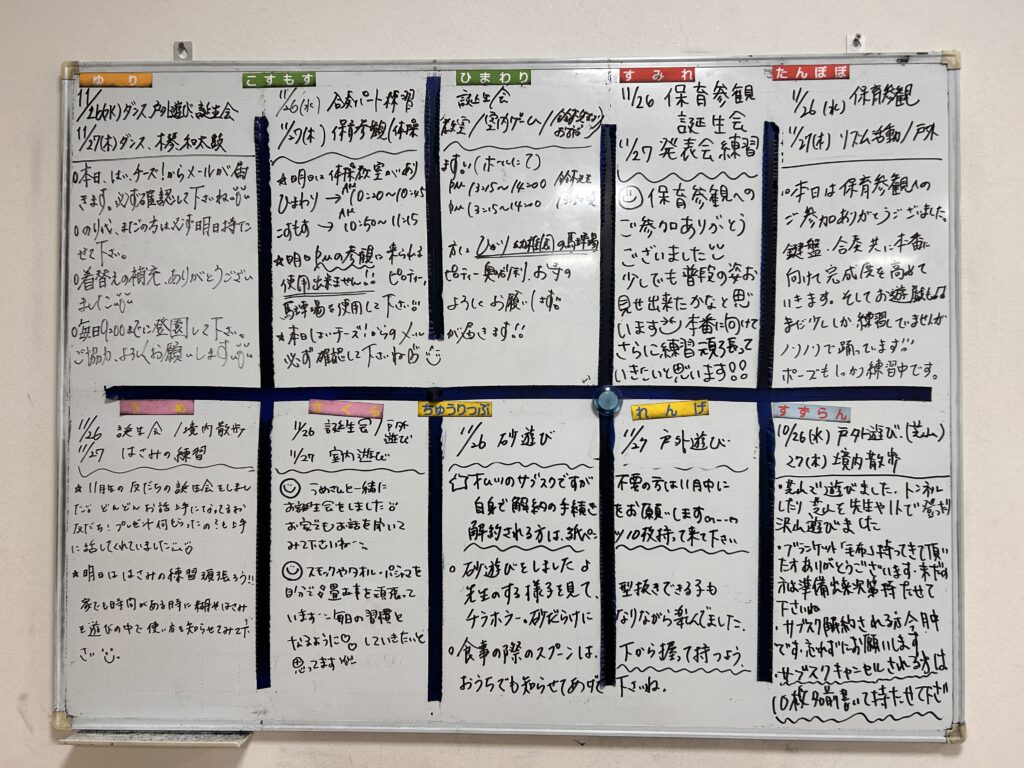 ゆり
11/26(水)ダンス、戸外遊び、誕生会
11/27(木)ダンス、木琴、和太鼓
○本日、はいチーズ!からメールが届
きます。必ず確認して下さいね
○のり代、まだの方は必ず明日持た
せて下さい。
○着替えの補充、ありがとうござい
ました
○毎日9:00までに登園して下さい。
ご協力、よろしくお願いします
こすもす
11/26(水) 合奏パート練習
11/27(木) 保育参観/体操
★明日は体操教室があり
ひまわり → AM 10:20〜10:45
こすもす → AM 10:50〜11:15
★明日PMの参観に来られる
使用出来ません!! ピロティー、
駐車場を使用して下さい
★本日はいチーズ!からのメール
必ず確認して下さいね
ひまわり
誕生会
教室/室内ゲーム/
ます。(ホールにて)
PM 13:15〜14:00
PM 13:15〜14:00
方は、ひかり幼稚園の駐車場
ピロティー奥の砂利、お寺の
よろしくお願いします
が届きます!!
すみれ
11/26 保育参観
誕生会
11/27 発表会練習
保育参観への
ご参加ありがとう
ございました
少しでも普段の姿お
見せ出来たかなと思
います 本番に向けて
さらに練習頑張って
いきたいと思います!!
たんぽぽ
11/26(水) 保育参観
11/27(木) リズム活動/戸外
・本日は保育参観への
ご参加ありがとうございました。
鍵盤、合奏共に本番に
向けて完成度を高めて
いきます。そしてお遊戯も♫
まだ少ししか練習していませんが
ノリノリで踊っています!!
ポーズもしっかり練習中です。
うめ
11/26 誕生会/境内散歩
11/27 はさみの練習
★11月生の友だちの誕生会をしまし
た どんどんお話上手になってるわが
友だち!プレゼント何もらったの?も上手
に話してくれていました
★明日ははさみの練習頑張ろう!!
家でも時間がある時に糊やはさみ
を遊びの中で使い方を知らせてみて下
さい
さくら
11/26 誕生会/戸外
遊び
11/27 室内遊び
うめさんと一緒に
お誕生会をしました
お家でもお話を聞いて
みて下さいね〜
スモックやタオル・パジャマを
自分で畳む事を頑張って
います〜毎日の習慣と
なるように♡していきたいと
思ってます
ちゅうりっぷ
11/26 砂遊び
オムツのサブスクですが
自身で解約の手続き
解約される方は、紙パ
○砂遊びをしましたよ
先生のする様子を見て、
チラホラ。砂だらけに
○食事の際のスプーンは、
おうちでも知らせてあげて
れんげ
11/27 戸外遊び
不要の方は11月中に
をお願いします
ツ10枚持って来て下さい
型抜きできる子も
なりながら楽しんでました。
下から握って持つよう、
下さいね。
すずらん
10/26(水) 戸外遊び、(芝山)
27(木) 境内散歩
・芝山で遊びました。トンネル
したり芝山を先生や1人で登ったり
沢山遊びました
・ブランケット「毛布」持ってきて頂い
たオありがとうございます。まだの
方は準備出来次第持たせて
下さいね
・サブスク解約される方今月中
です。忘れずにお願いします
・サブスクキャンセルされる方は
10枚名前書いて持たせて下さい